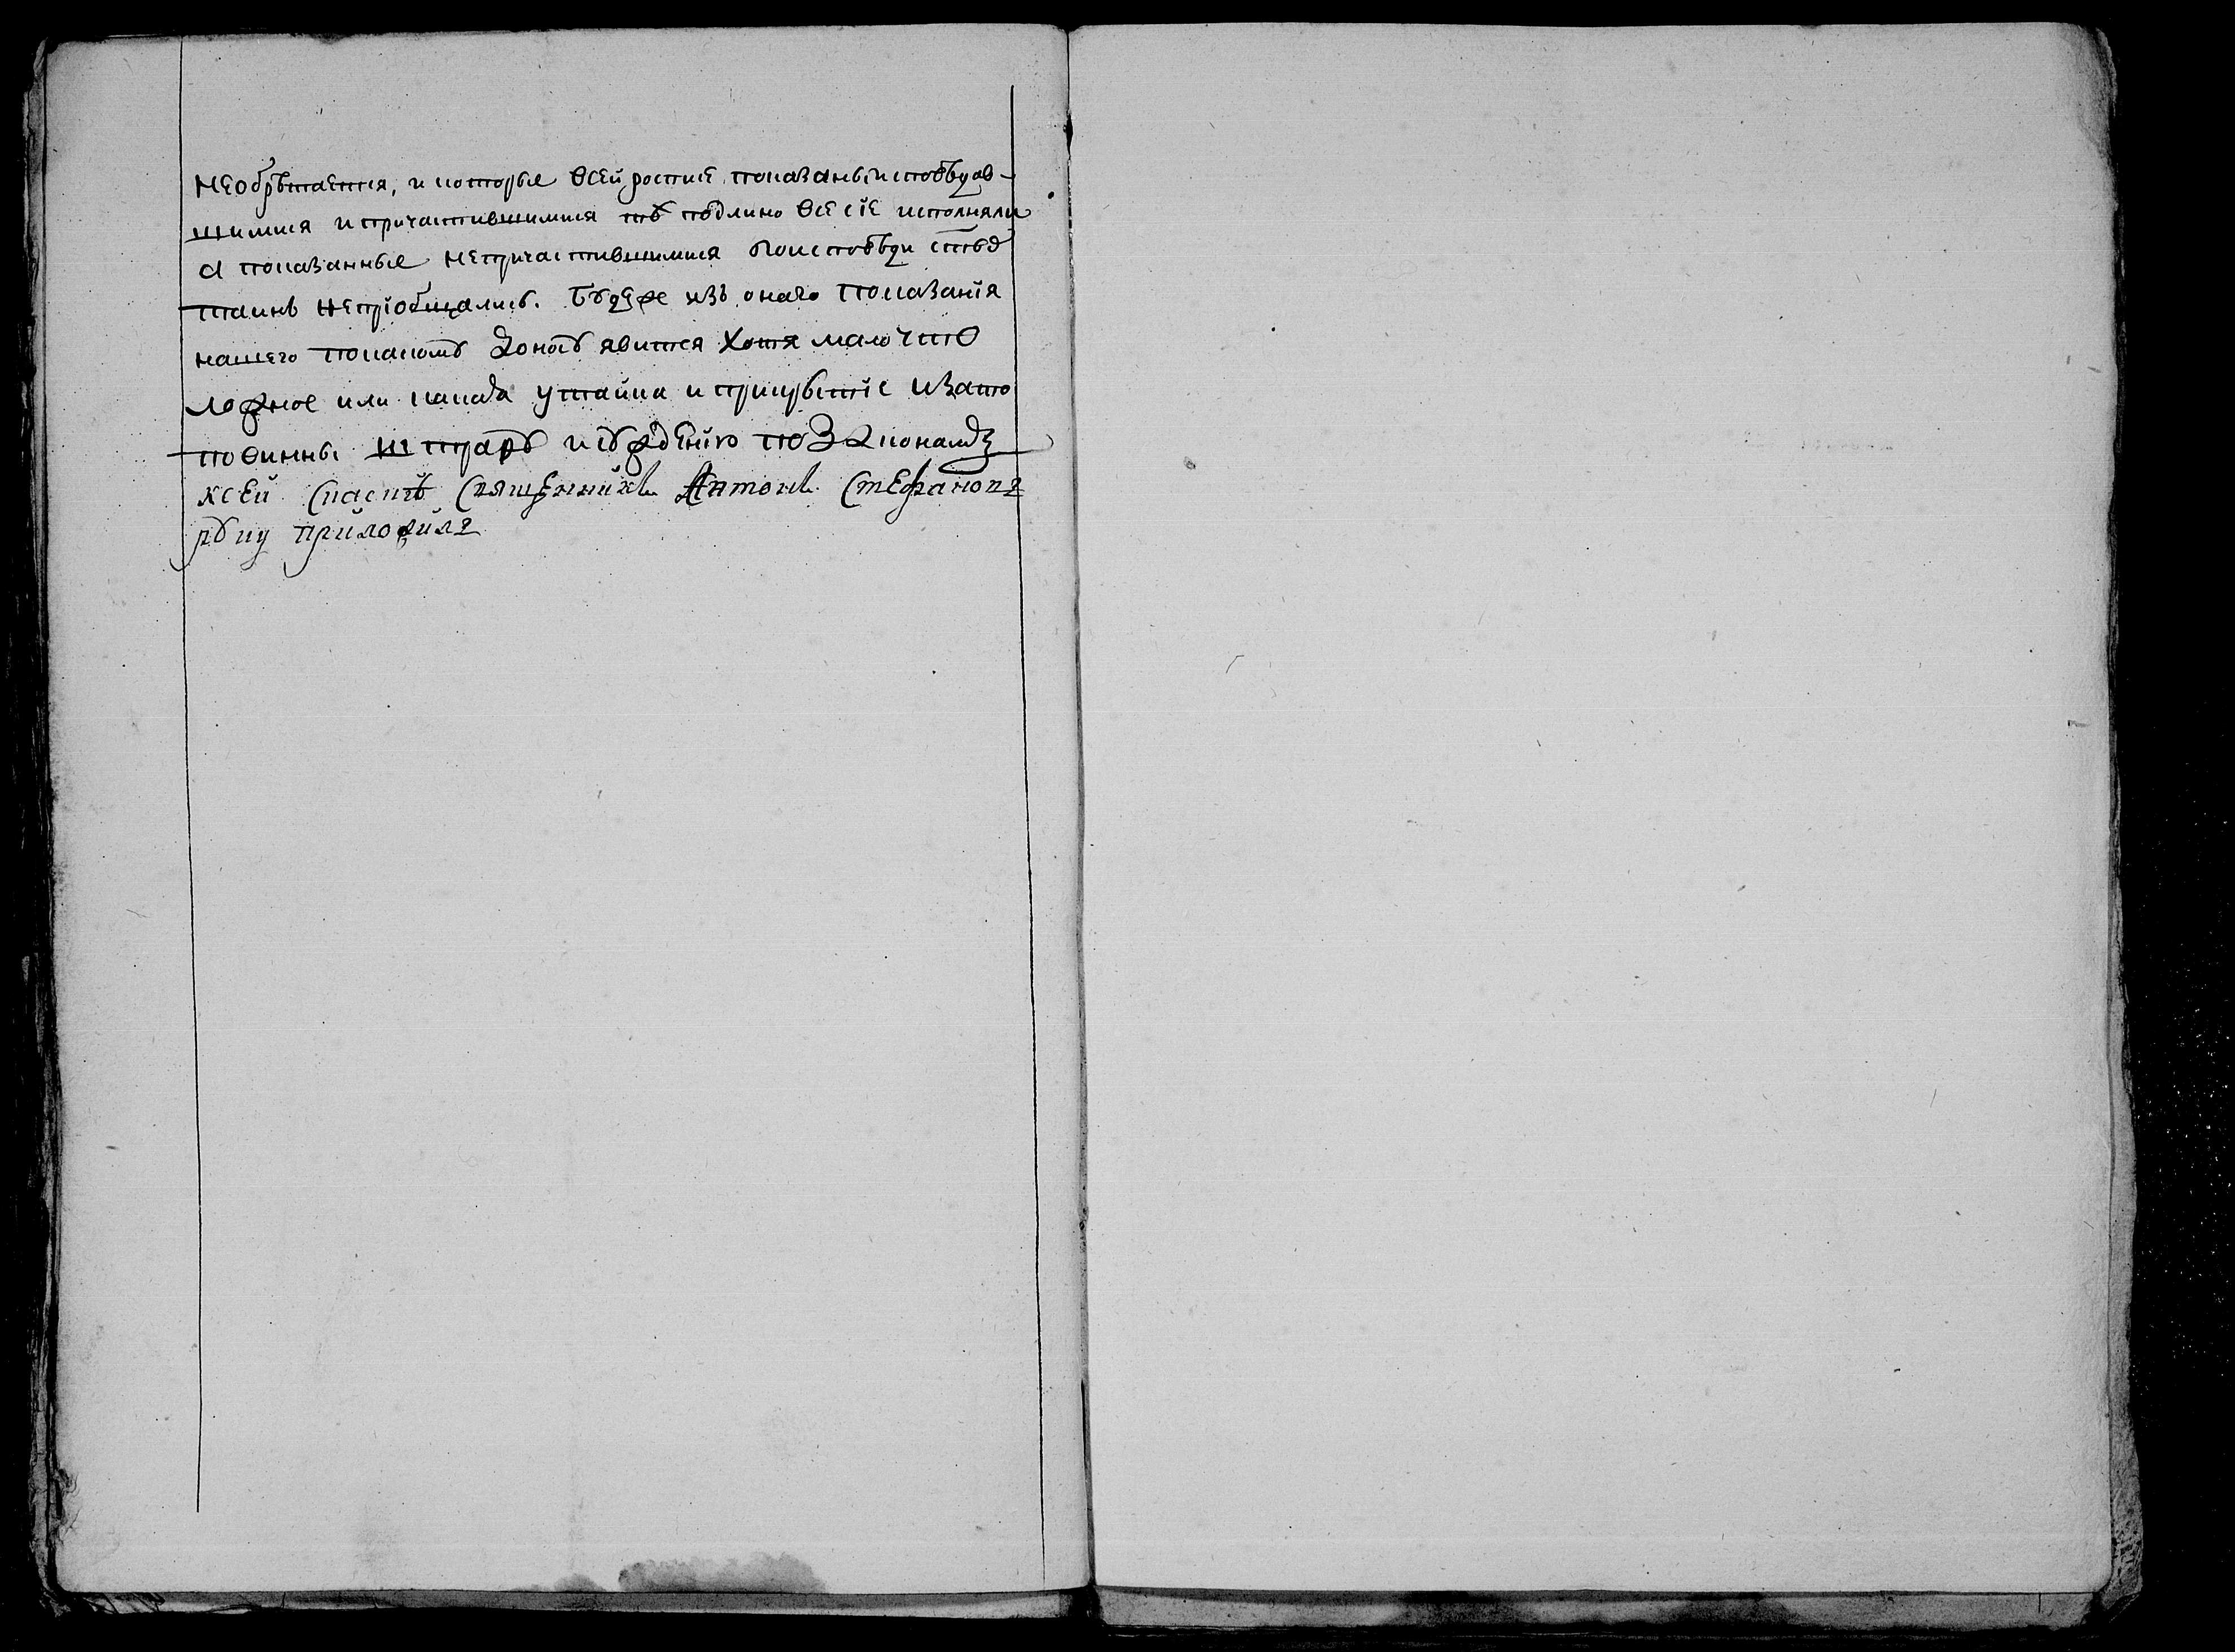 необрѣтается, и которые всей росписе показаны исповѣдав-
шимися и причастившимися тѣ подлино все сїе исполняли
а показанные непричастившимися по исповѣди стыхъ
таинъ непрїобщались. Буде же изъ онаго показанїя
нашего покакомъ доносѣ явится хотя мало что
ложное или какая утайка и прикрытїе и за то
повинны штрафѣ и сужденїю по
ксей Священникъ Антонъ Стефановъ
руку приложилъ